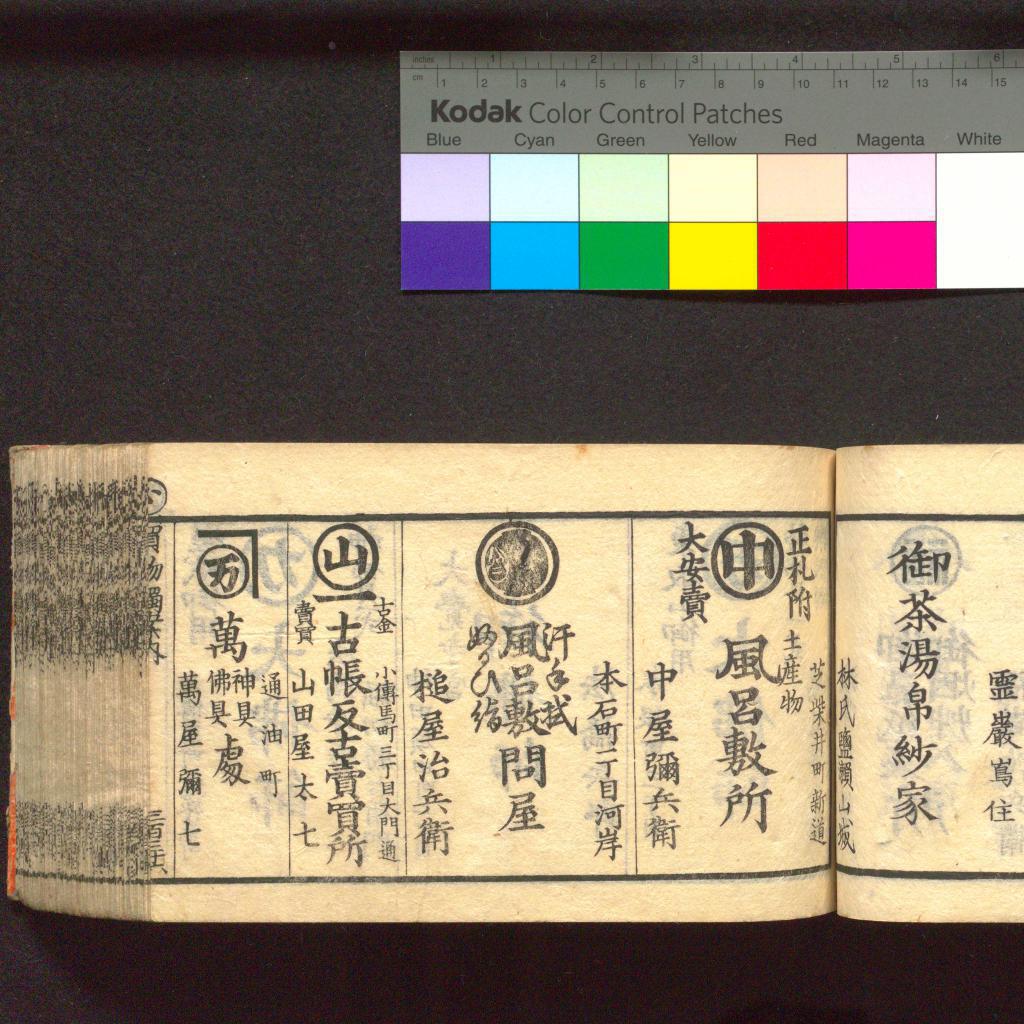 inches 1 2 3 4 5 6
cm 1 2 3 4 5 6 7 8 9 10 11 12 13 14 15
Kodak Color Control Patches
Blue Cyan Green Yellow Red Magenta White
霊巌嶌住
御茶湯帛紗家
林氏鹽瀬山城
正札附
土産物
芝柴井町新道
中
風呂敷所
大安賣
中屋彌兵衛
本石町二丁目河岸
汗手拭
風呂敷問屋
槌屋治兵衛
古金
小傳馬町三丁目大門通
山
古帳反古賣買所
賣買
山田屋太七
通油町
万
萬
神具
佛具
處
萬屋彌七